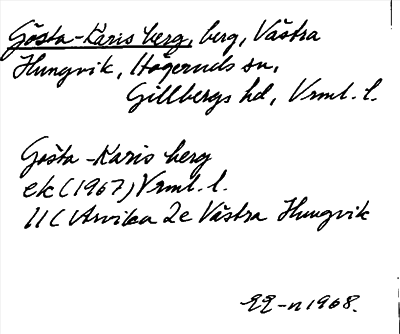 Gösta-Karis berg, berg, Västra
Hungvik, Högeruds sn,
Gillbergs hd, Vrml. l.
Gösta-Karis berg
ek (1967) Vrml. l.
11C Arvika 2e Västra Hungvik
1968.